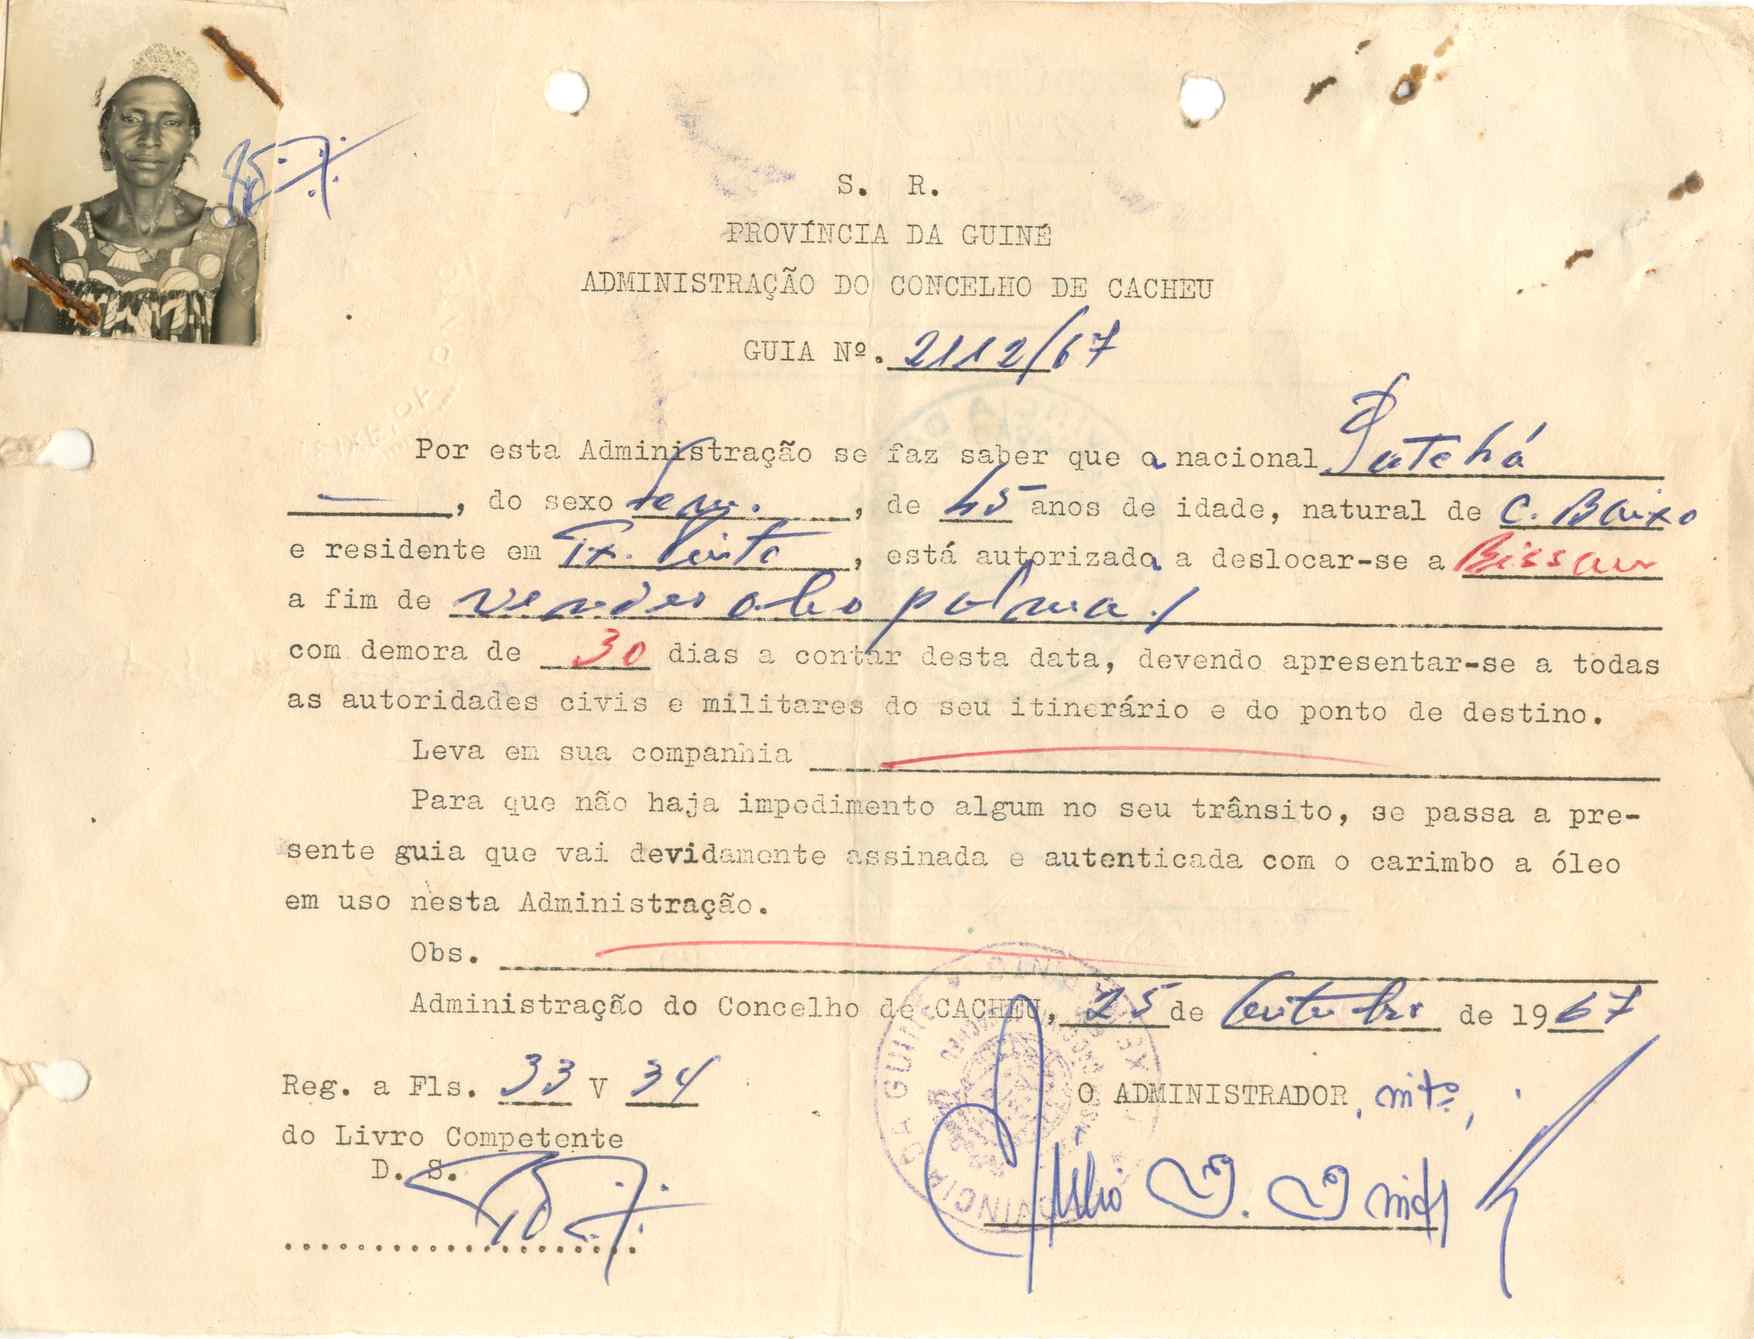 S. R.
PROVÍNCIA DA GUINÉ
ADMINISTRAÇÃO DO CONCELHO DE CACHEU
GUIA Nº. 2112/67
Por esta Administração se faz saber que a nacional Patchá
, do sexo fem. , de 45 anos de idade, natural de C. Baixo
e residente em Tx. Pinto , está autorizada a deslocar-se a Bissau
a fim de vender oleo palma
com demora de 30 dias a contar desta data, devendo apresentar-se a todas
as autoridades civis e militares do seu itinerário e do ponto de destino.
Leva em sua companhia
Para que não haja impedimento algum no seu trânsito, se passa a pre-
sente guia que vai devidamente assinada e autenticada com o carimbo a óleo
em uso nesta Administração.
Obs.
Administração do Concelho de CACHEU, 25 de Outubro de 1967
Reg. a Fls. 33 V 34
O ADMINISTRADOR, intº,
do Livro Competente
D. S.
PROVÍNCIA DA GUINÉ